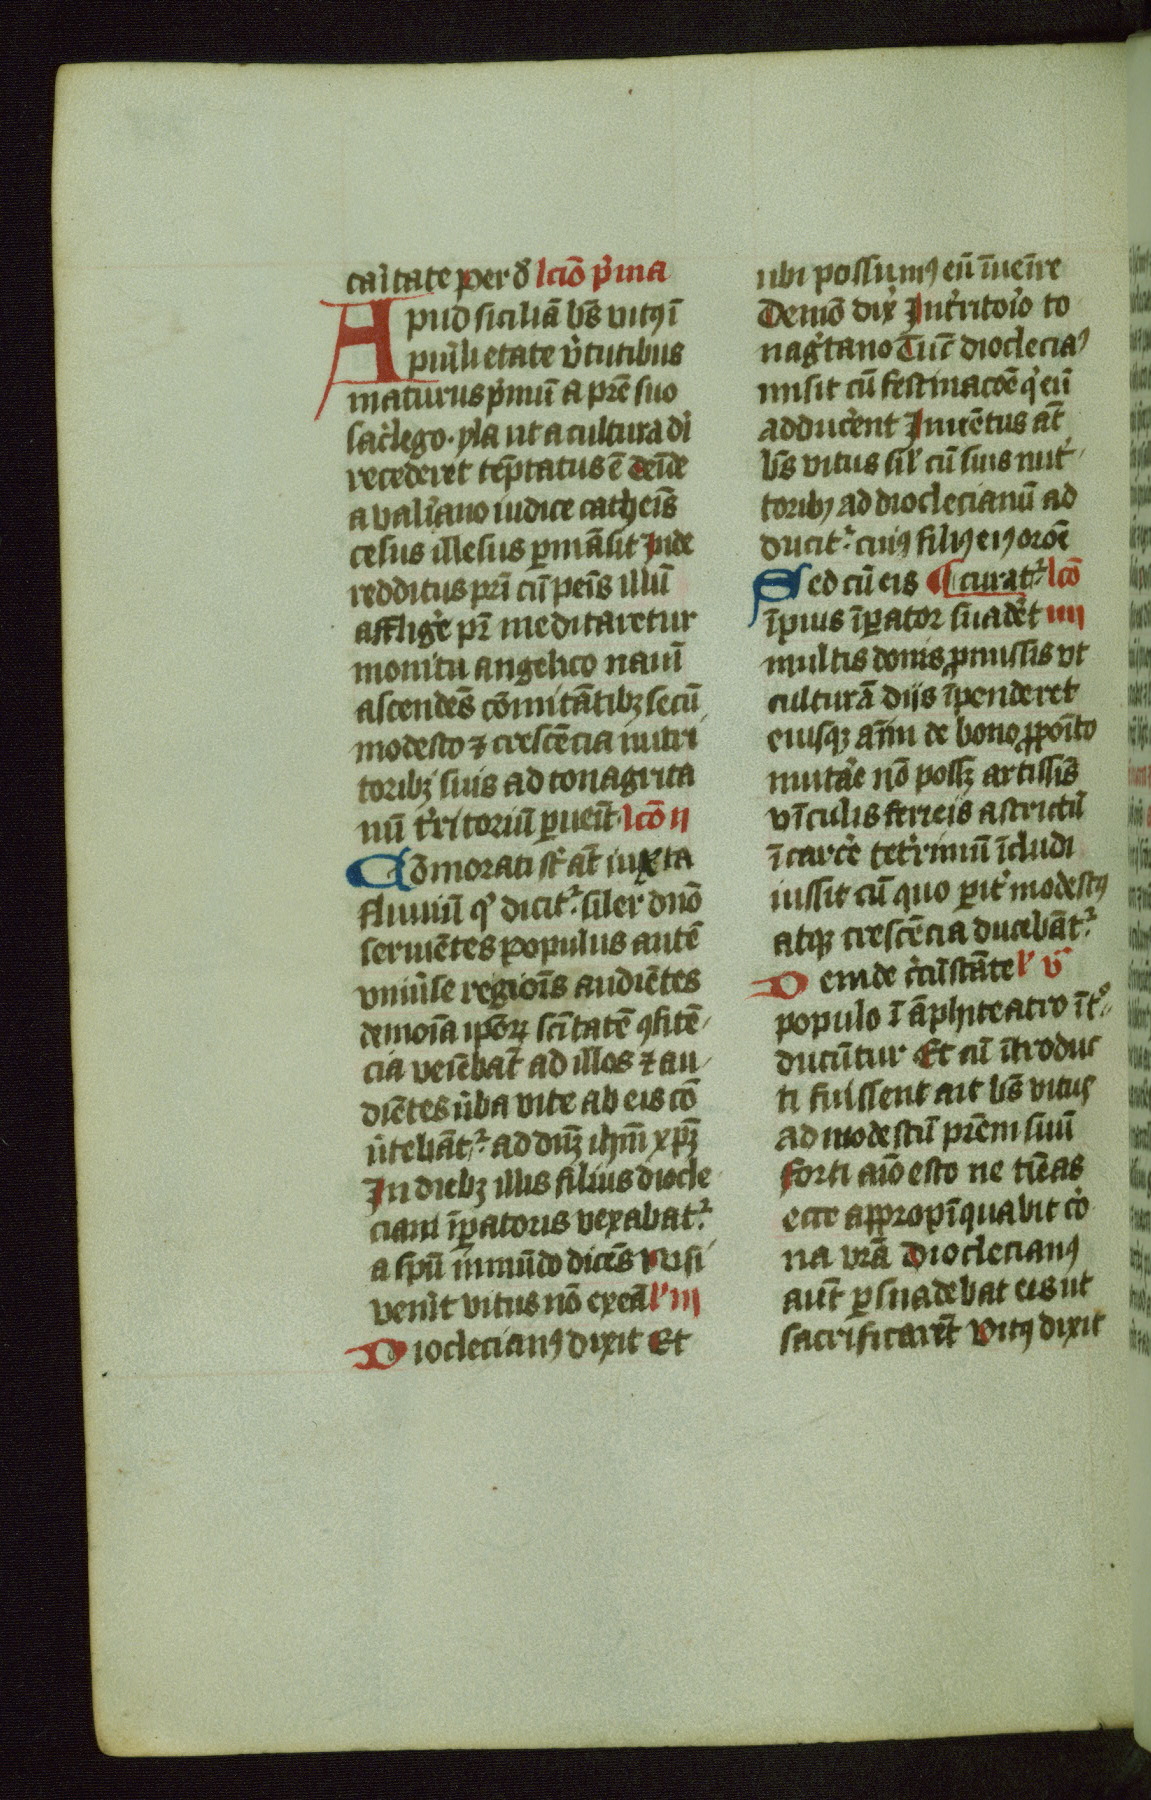 caritate per dn̄ lcıō p̄ma
Apud siciliā bt̄s vitꝯ ı̄
puıl̄i etate v̓tutibus
maturus p̓muı̄ a pr̄e suo
sac̓lego · yla ut a cultura di
recederet tēp̄tatus ē dein̄de
a valı̓ano iudice cathen̄is
cesus illesus ꝑmāsit Inde
redditus pr̄i cū pen̄is illū
afflig̓e pr̄ meditaretur
monitu angelico nauı̄
ascendēs cōmitātibꝫ secū
modesto ⁊ crescēcia nutri
toribꝫ suis ad tonagrita
nū t̓ritoriū ꝑuen̄it lcō ıı
Cōmorati st̄ aūt iuxta
fluuiū q̓ dicit᷑ siler dn̄o
seruiētes populus autē
vniu̓se regiōis audiētes
demoı̄a ıp̄oꝝ scı̄tatē ꝯfitē
cia veniēbāt ad illos ⁊ au
diētes v̓ba vite ab eis cō
u̓tebāt᷑ ad dn̄ꝫ ihm̄ xp̄ꝫ
In diebꝫ illis filius diocle
ciani īꝑatoris vexabat᷑
a spū inmūdo dicēs Nisi
ven̄it vitus nō exeā l̓ ııı
Dioclecianꝯ dixit Et
ubi possumꝯ eū īuenı̄re
Demō dix̓ In t̓ritoı̓o to
nag̓tano Tuc̄ dioclecia⁹
misit cū festinacōē q̓ eū
adduc̓ent Inuētus aūt
bt̄s vitus sil̓ cū suis nut̓
toribꝫ ad dioclecianū ad
ducit᷑ cuiꝯ filiꝯ eiꝯ orōē
Sed cū eis ¶ curat᷑ lcō
īpius īꝑator suadēt ıııı
multis donis ꝓmissis vt
culturā diis īpenderet
eiusqꝫ aı̄m de bono ꝓpōito
muta̓e nō possꝫ artissı̄s
vīculis ferreis astrictū
ī carc̓e tet̓rimū īcludi
iussit cū quo ꝑit̓ modestꝯ
atqꝫ crescēcia ducebāt᷑
Deinde c̓cūstāte l̓ v̄
populo ı̄ āphiteatro īt̓
ducūtur Et cū ītroduc
ti fuissent ait bt̄s vitus
ad modestū pr̄em suū
Forti aı̄o esto ne tieas
ecce appropīquabit co̓
na vr̄a Dioclecianꝯ
aut̄ ꝑsuadebat eis ut
sacrificarēt Vitꝯ dixit